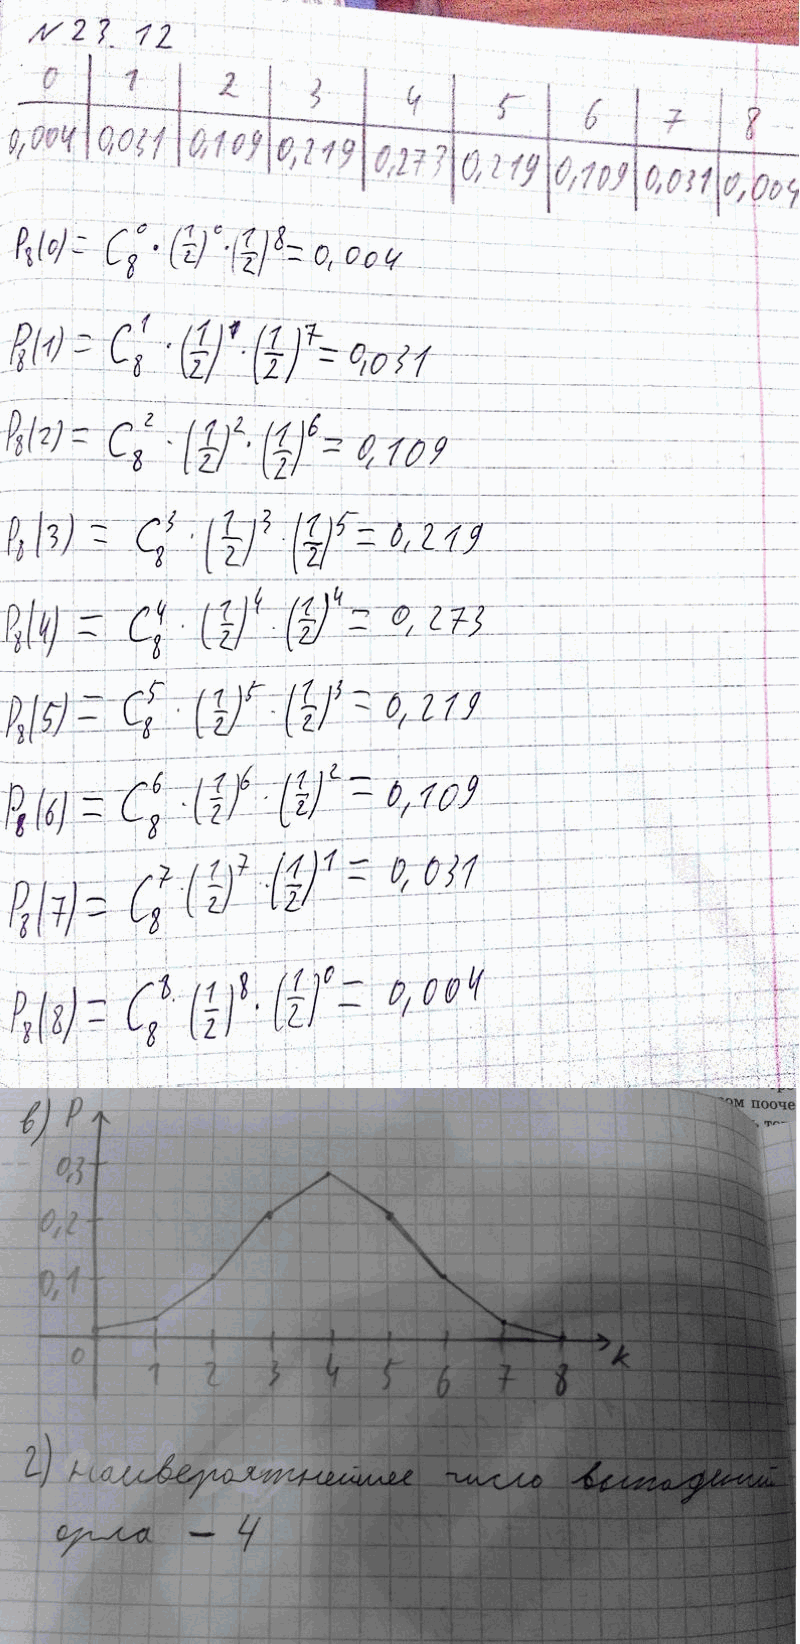 N 23.12
0 1 2 3 4 5 6 7 8
0,004 0,031 0,109 0,219 0,273 0,219 0,109 0,031 0,004
P₈(0) = C₈⁰ · (1/2)⁰ · (1/2)⁸ = 0,004
P₈(1) = C₈¹ · (1/2)¹ · (1/2)⁷ = 0,031
P₈(2) = C₈² · (1/2)² · (1/2)⁶ = 0,109
P₈(3) = C₈³ · (1/2)³ · (1/2)⁵ = 0,219
P₈(4) = C₈⁴ · (1/2)⁴ · (1/2)⁴ = 0,273
P₈(5) = C₈⁵ · (1/2)⁵ · (1/2)³ = 0,219
P₈(6) = C₈⁶ · (1/2)⁶ · (1/2)² = 0,109
P₈(7) = C₈⁷ · (1/2)⁷ · (1/2)¹ = 0,031
P₈(8) = C₈⁸ · (1/2)⁸ · (1/2)⁰ = 0,004
ом пооче
в) P
0,3
0,2
0,1
0 1 2 3 4 5 6 7 8 k
г) наивероятнейшее число выпадений
орла – 4